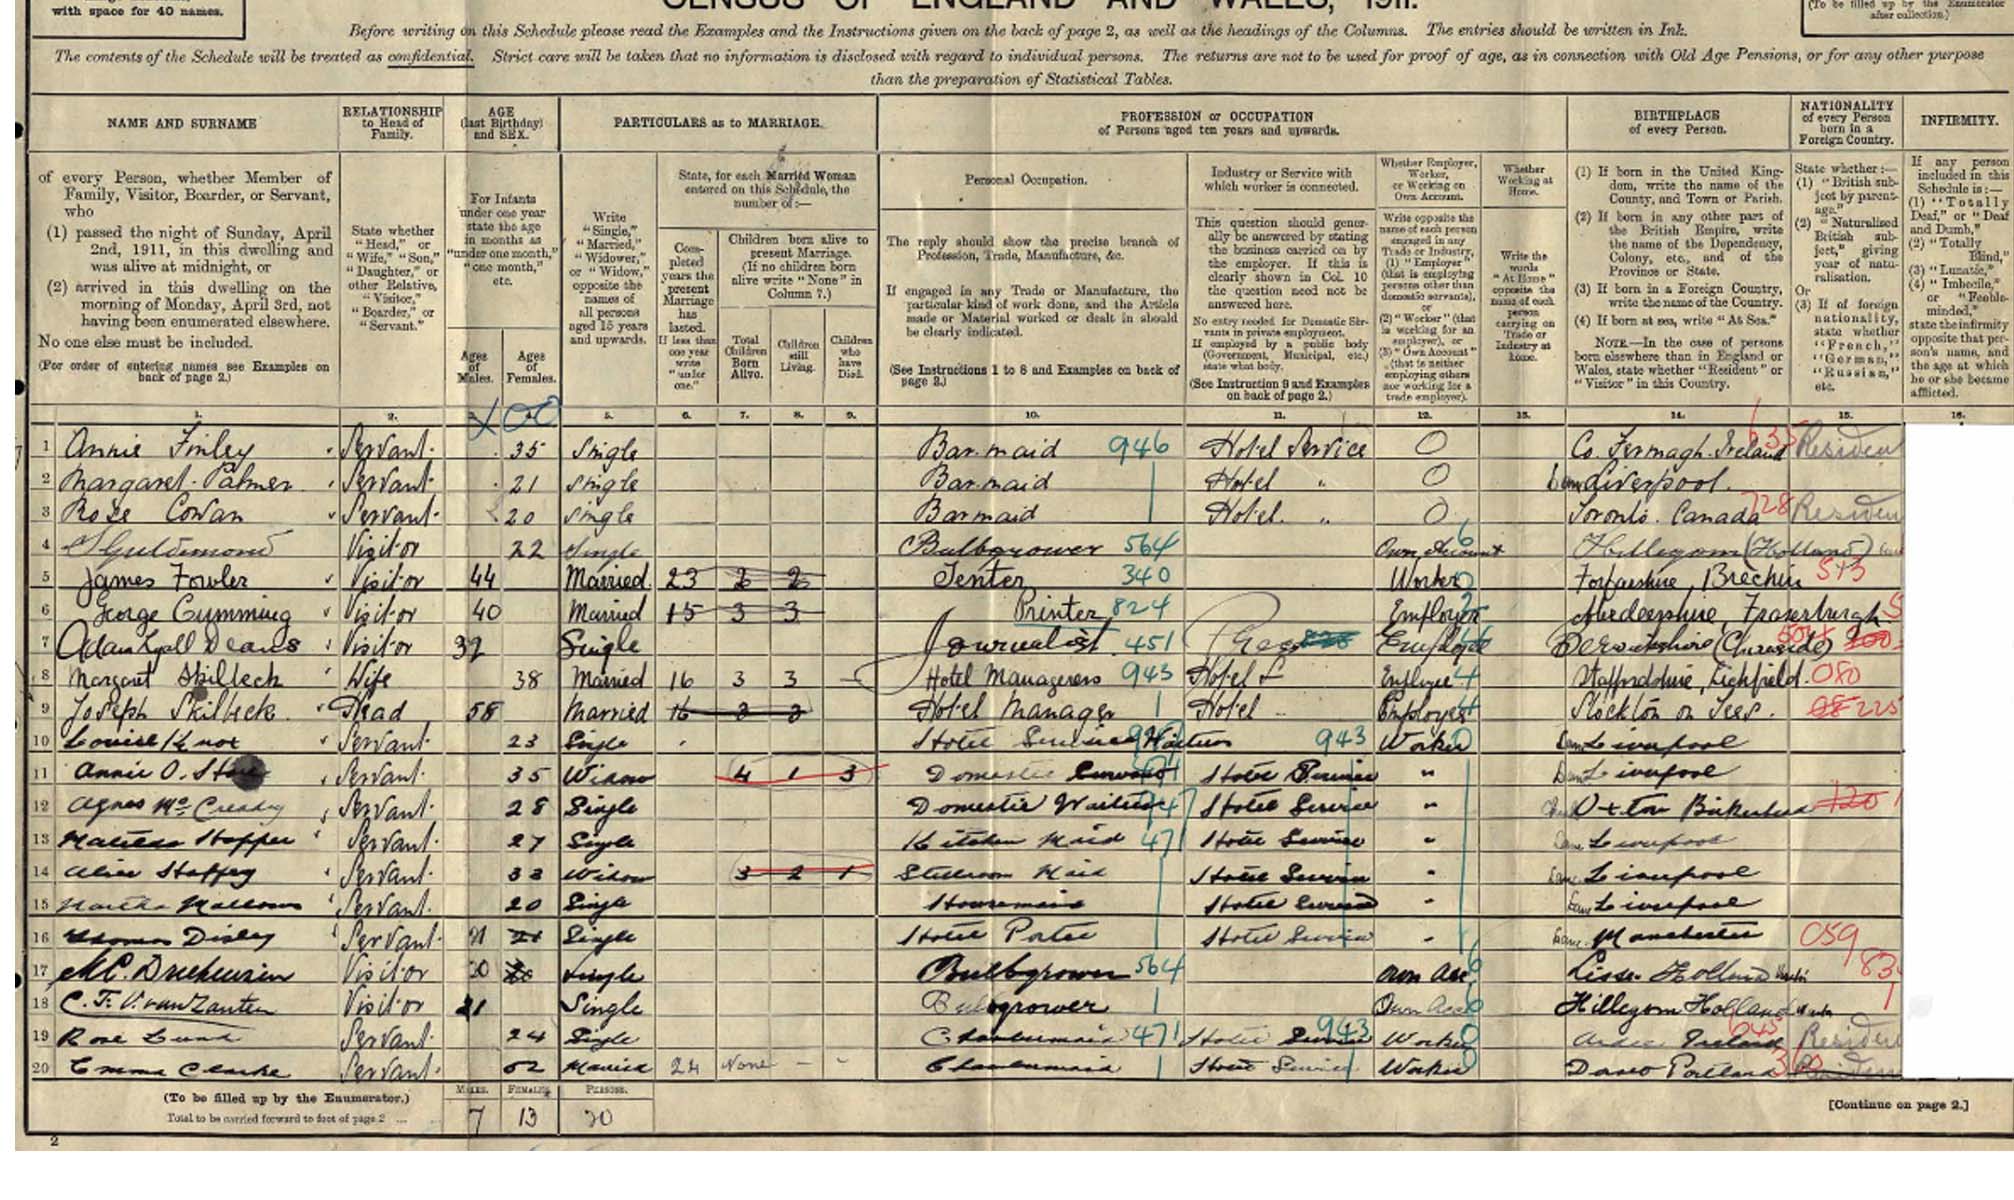 with space for 40 names.
CENSUS OF ENGLAND AND WALES, 1911.
(To be filled up by the Enumerator after collection.)
Before writing on this Schedule please read the Examples and the Instructions given on the back of page 2, as well as the headings of the Columns. The entries should be written in Ink.
The contents of the Schedule will be treated as confidential. Strict care will be taken that no information is disclosed with regard to individual persons. The returns are not to be used for proof of age, as in connection with Old Age Pensions, or for any other purpose
than the preparation of Statistical Tables.
NAME AND SURNAME
RELATIONSHIP to Head of Family.
AGE (last Birthday) and SEX.
PARTICULARS as to MARRIAGE.
PROFESSION or OCCUPATION of Persons aged ten years and upwards.
BIRTHPLACE of every Person.
NATIONALITY of every Person born in a Foreign Country.
INFIRMITY.
of every Person, whether Member of Family, Visitor, Boarder, or Servant, who
(1) passed the night of Sunday, April 2nd, 1911, in this dwelling and was alive at midnight, or
(2) arrived in this dwelling on the morning of Monday, April 3rd, not having been enumerated elsewhere.
No one else must be included.
(For order of entering names see Examples on back of page 2.)
State whether "Head," or "Wife," "Son," "Daughter," or other Relative, "Visitor," "Boarder," or "Servant."
For Infants under one year state the age in months as "under one month," "one month," etc.
Ages of Males.
Ages of Females.
Write "Single," "Married," "Widower," or "Widow," opposite the names of all persons aged 15 years and upwards.
State, for each Married Woman entered on this Schedule, the number of:—
Completed years the present Marriage has lasted. If less than one year write "under one."
Children born alive to present Marriage. (If no children born alive write "None" in Column 7.)
Total Children Born Alive.
Children still Living.
Children who have Died.
Personal Occupation.
The reply should show the precise branch of Profession, Trade, Manufacture, &c.
If engaged in any Trade or Manufacture, the particular kind of work done, and the Article made or Material worked or dealt in should be clearly indicated.
(See Instructions 1 to 8 and Examples on back of page 2.)
Industry or Service with which worker is connected.
This question should generally be answered by stating the business carried on by the employer. If this is clearly shown in Col. 10 the question need not be answered here.
No entry needed for Domestic Servants in private employment. If employed by a public body (Government, Municipal, etc.) state what body.
(See Instruction 9 and Examples on back of page 2.)
Whether Employer, Worker, or Working on Own Account.
Write opposite the name of each person engaged in any Trade or Industry, (1) "Employer" (that is employing persons other than domestic servants), or (2) "Worker" (that is working for an employer), or (3) "Own Account" (that is neither employing others nor working for a trade employer).
Whether Working at Home.
Write the words "At Home" opposite the name of each person carrying on Trade or Industry at home.
(1) If born in the United Kingdom, write the name of the County, and Town or Parish.
(2) If born in any other part of the British Empire, write the name of the Dependency, Colony, etc., and of the Province or State.
(3) If born in a Foreign Country, write the name of the Country.
(4) If born at sea, write "At Sea."
NOTE.—In the case of persons born elsewhere than in England or Wales, state whether "Resident" or "Visitor" in this Country.
State whether:—
(1) "British subject by parentage."
(2) "Naturalised British subject," giving year of naturalisation.
Or
(3) If of foreign nationality, state whether "French," "German," "Russian," etc.
If any person included in this Schedule is:—
(1) "Totally Deaf," or "Deaf and Dumb,"
(2) "Totally Blind,"
(3) "Lunatic,"
(4) "Imbecile," or "Feeble-minded,"
state the infirmity opposite that person's name, and the age at which he or she became afflicted.
1. 2. 3. 4. 5. 6. 7. 8. 9. 10. 11. 12. 13. 14. 15. 16.
1 Annie Finley Servant 35 Single Barmaid 946 Hotel Service 0 Co. Fermagh. Ireland 635 Residen
2 Margaret Palmer Servant 21 Single Barmaid Hotel " 0 Liverpool.
3 Rose Cowan Servant 20 Single Barmaid Hotel. " 0 Toronto. Canada 728 Residen
4 Visitor 22 Single Bulbgrower 564 Own Account 6 Hillegom (Holland)
5 James Fowler Visitor 44 Married 23 2 2 Tenter 340 Worker Forfarshire, Brechin
6 George Cumming Visitor 40 Married 15 3 3 Printer 824 Employer Aberdeenshire, Fraserburgh
7 Adam Lyall Deans Visitor 32 Single Journalist 451 Berwickshire (Chirnside)
8 Margaret Skilbeck Wife 38 Married 16 3 3 Hotel Manageress 943 Hotel Employee 4 Staffordshire, Lichfield. 080
9 Joseph Skilbeck. Head 58 Married 16 3 3 Hotel Manager Hotel Stockton on Tees. 225
10 Louise Knox Servant 23 Single Hotel Service Waitress 943 Worker Liverpool
11 Annie O. Servant 35 Widow 4 1 3 Domestic Hotel Service " Liverpool
12 Agnes McCready Servant 28 Single Domestic Waitress Hotel Service " Oxton Birkenhead
13 Matilda Hopper Servant 27 Single Kitchen Maid 471 Hotel Service " Liverpool
14 Alice Servant 33 Widow 3 2 1 Stillroom Maid Hotel Service " Liverpool
15 Martha Mallows Servant 20 Single Housemaid Hotel Service " Liverpool
16 Thomas Disley Servant 21 21 Single Hotel Porter Hotel Service " Manchester 059
17 Visitor 20 Single Bulbgrower 564 Own Acc Lisse Holland
18 C. F. V. van Zanten Visitor 21 Single Bulbgrower Own Acc Hillegom Holland
19 Rose Lund Servant 24 Single Chambermaid 471 Hotel Service 943 Worker 0 Ireland Residen
20 Emma Clarke Servant 52 Married 24 None – Chambermaid Hotel Service Worker 0
(To be filled up by the Enumerator.)
Total to be carried forward to foot of page 2
MALES. FEMALES. PERSONS.
7 13 20
[Continue on page 2.]
2